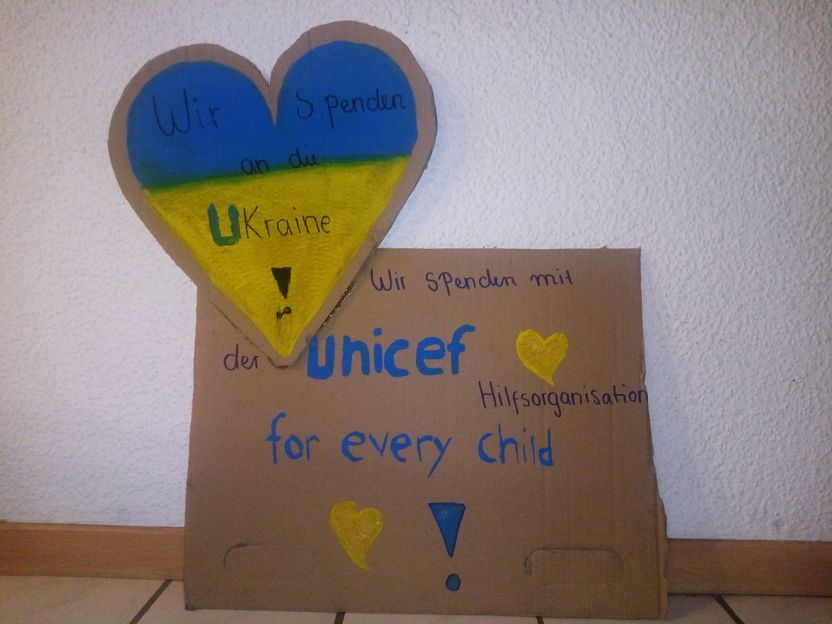 Wir Spenden
an die
UKraine
!
Wir spenden mit
der unicef
Hilfsorganisation
for every child
!